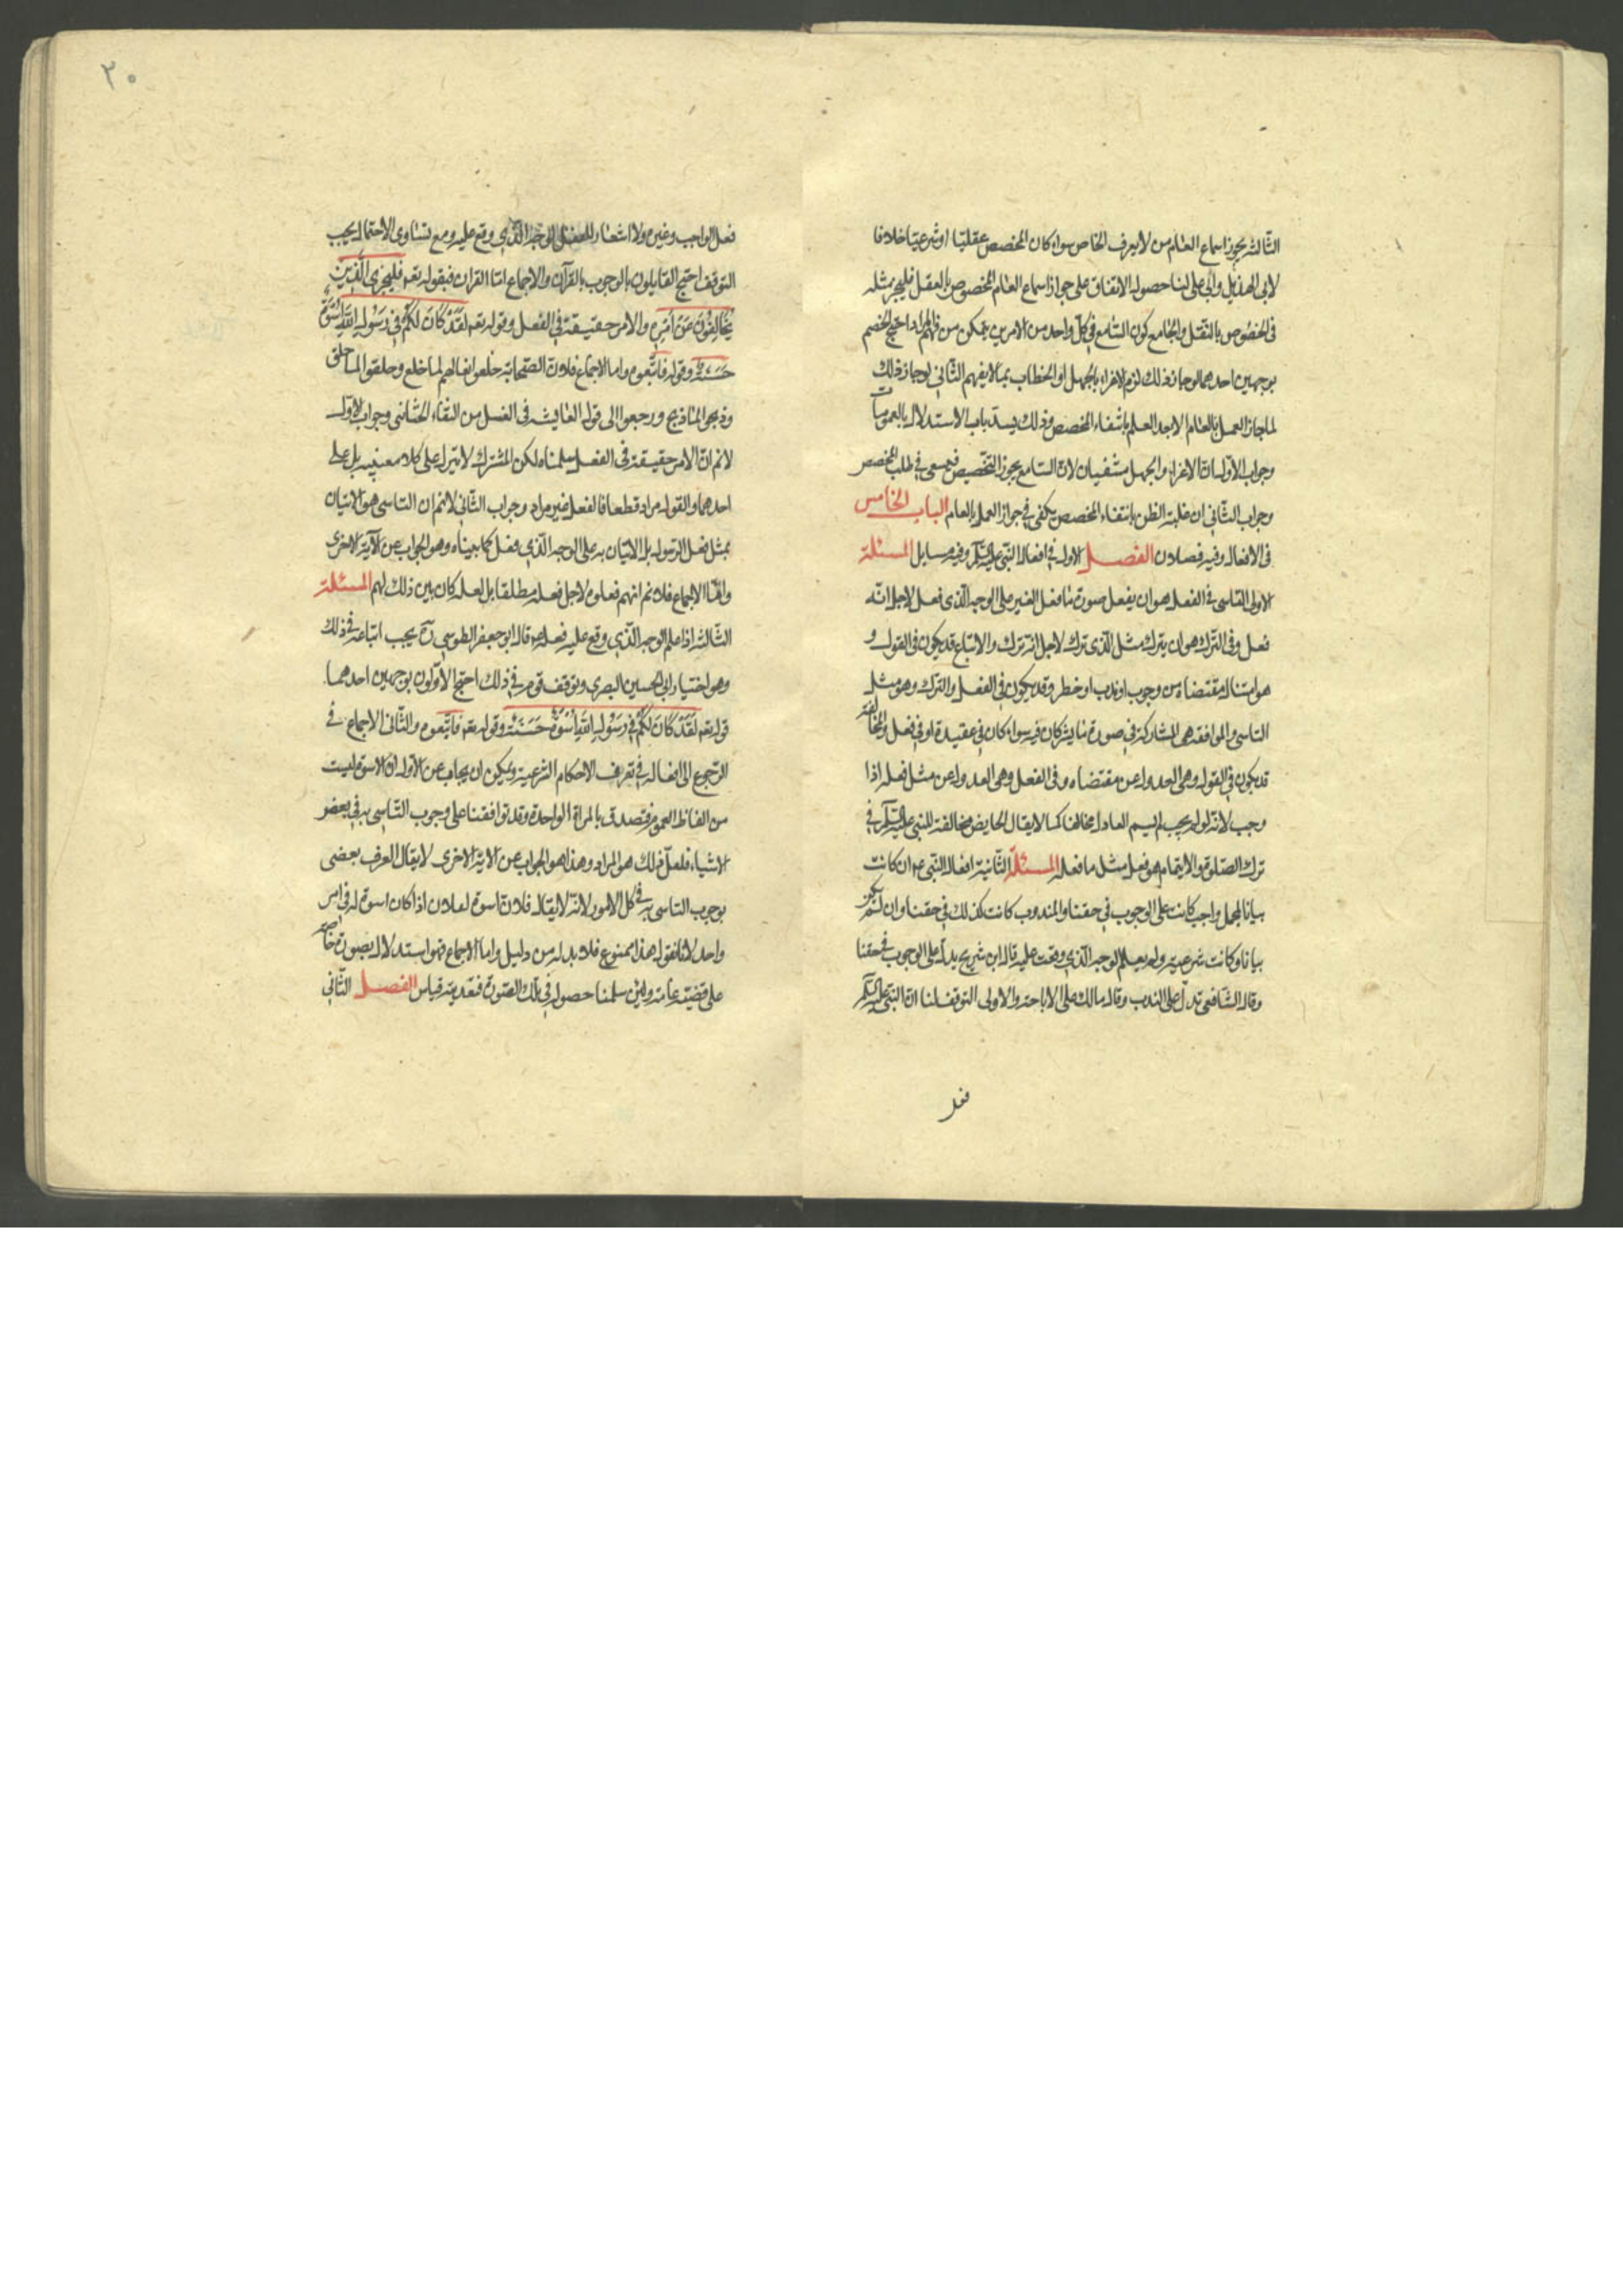 الثالثة يجوز اسماع العام من لا يعرف الخاص سواء كان المخصص عقليّا او شرعيّا خلافا
لابى الهذيل وابى على لنا حصول الاتفاق على جواز اسماع العام المخصوص بالعقل فليجز مثله
فى المخصوص بالنقل والجامع كون السّامع فى كلّ واحد من الامرين يتمكن من فهم المراد احتج الخصم
بوجهين احدهما لو جاز ذلك لزم الاغراء بالجهل او الخطاب بما لا يفهم الثّانى لو جاز ذلك
لما جاز العمل بالعام الا بعد العلم بانتفاء المخصص وذلك يسد باب الاستدلال بالعمومات
وجواب الاول ان الاغراء والجهل منتفيان لان السّامع يجوز التخصيص فيسعى فى طلب المخصص
وجواب الثّانى ان غلبة الظن بانتفاء المخصص يكفى فى جواز العمل بالعام الباب الخامس
فى الافعال وفيه فصلان الفصل الاول فى افعال النّبى عليه السّلم وفيه مسايل المسئلة
الاولى التاسى فى الفعل هو ان يفعل صورة ما فعل الغير على الوجه الّذى فعل لاجل انّه
فعل وفى الترك هو ان يترك مثل الّذى ترك لاجل انه ترك والاتباع قد يكون فى القول و
هو امتثال مقتضاه من وجوب او ندب او خطر وقد يكون فى الفعل والترك وهو مثل
التاسى والموافقة هى المشاركة فى صورة ما يشركان فيه سواء كان فى عقيدة او فى فعل والمخالفة
قد يكون فى القول وهى العدول عن مقتضاه وفى الفعل وهى العدول عن مثل فعله اذا
وجب لانّه لو لم يجب لم يسم العادل مخالفا كما لا يقال الحايض مخالفة للنبى عليه السّلم فى
ترك الصّلوة والايتمام هو فعل مثل ما فعله المسئلة الثّانية افعال النّبى ع ان كانت
بيانا لمجمل واجب كانت على الوجوب فى حقنا والمندوب كانت كذلك فى حقنا وان لم يكن
بيانا وكانت شرعية ولم يعلم الوجه الّذى وقعت عليه قال ابن شريح يدل على الوجوب فى حقنا
وقال الشّافعى تدلّ على الندب وقال مالك على الاباحة والاولى التوقف لنا ان النّبى عليه السّلم
فعل
٢٠
فعل الواجب وغيره ولا اشعار للفعل الوجه الّذى وقع عليه ومع تساوى الاحتمال يجب
التوقف احتج القايلون بالوجوب بالقرآن والاجماع امّا القران فبقوله تعه فليحذر الّذين
يخالفون عن امره والامر حقيقة فى الفعل وقوله تعه لقد كان لكم فى رسول الله اسوة
حسنة وقوله فاتّبعوه واما الاجماع فلان الصّحابة خلعوا نعالهم لما خلع وحلقوا لما حلق
وذبحوا لما ذبح ورجعوا الى قول عايشه فى الغسل من التقاء الختانى وجواب الاول
لا نم ان الامر حقيقة فى الفعل سلمناه لكن المشترك لا يترك على كلا معنييه بل على
احدهما والقول مراد قطعا فالفعل غير مراد وجواب الثّانى لا نم ان التاسى هو الاتيان
بمثل فعل الرّسول بل الاتيان به على الوجه الّذى فعل كما بيناه وهو الجواب عن الآية الاخرى
وامّا الاجماع فلا نم انهم فعلوه لاجل فعله مطلقا بل لعله كان بين ذلك لهم المسئلة
الثالثة اذا علم الوجه الّذى وقع عليه فعله ع قال ابو جعفر الطوسى ره يجب اتباعه فى ذلك
وهو اختيار ابى الحسين البصرى وتوقف قوم فى ذلك احتج الاوّلون بوجهين احدهما
قوله تعه لقد كان لكم فى رسول الله اسوة حسنة وقوله تعه فاتّبعوه والثّانى الاجماع فى
الرّجوع الى افعاله فى تعرف الاحكام الشرعية ويمكن ان يجاب عن الاول ان الاسوة ليست
من الفاظ العموم فتصدق بالمرة الواحدة وقد توافقنا على وجوب التّاسى به فى بعض
الاشياء فلعلّ ذلك هو المراد وهذا هو الجواب عن الاية الاخرى لا يقال العرف يقضى
بوجوب التاسى به فى كل الامور لانّه لا يقال فلان اسوة لفلان اذا كان اسوة له فى امر
واحد لانا نقول هذا ممنوع فلا بد له من دليل واما الاجماع فهو استدلال بصورة خاصة
على قضيّة عامة ولئن سلمنا حصوله فى تلك الصّورة فتعديته قياس الفصل الثّانى